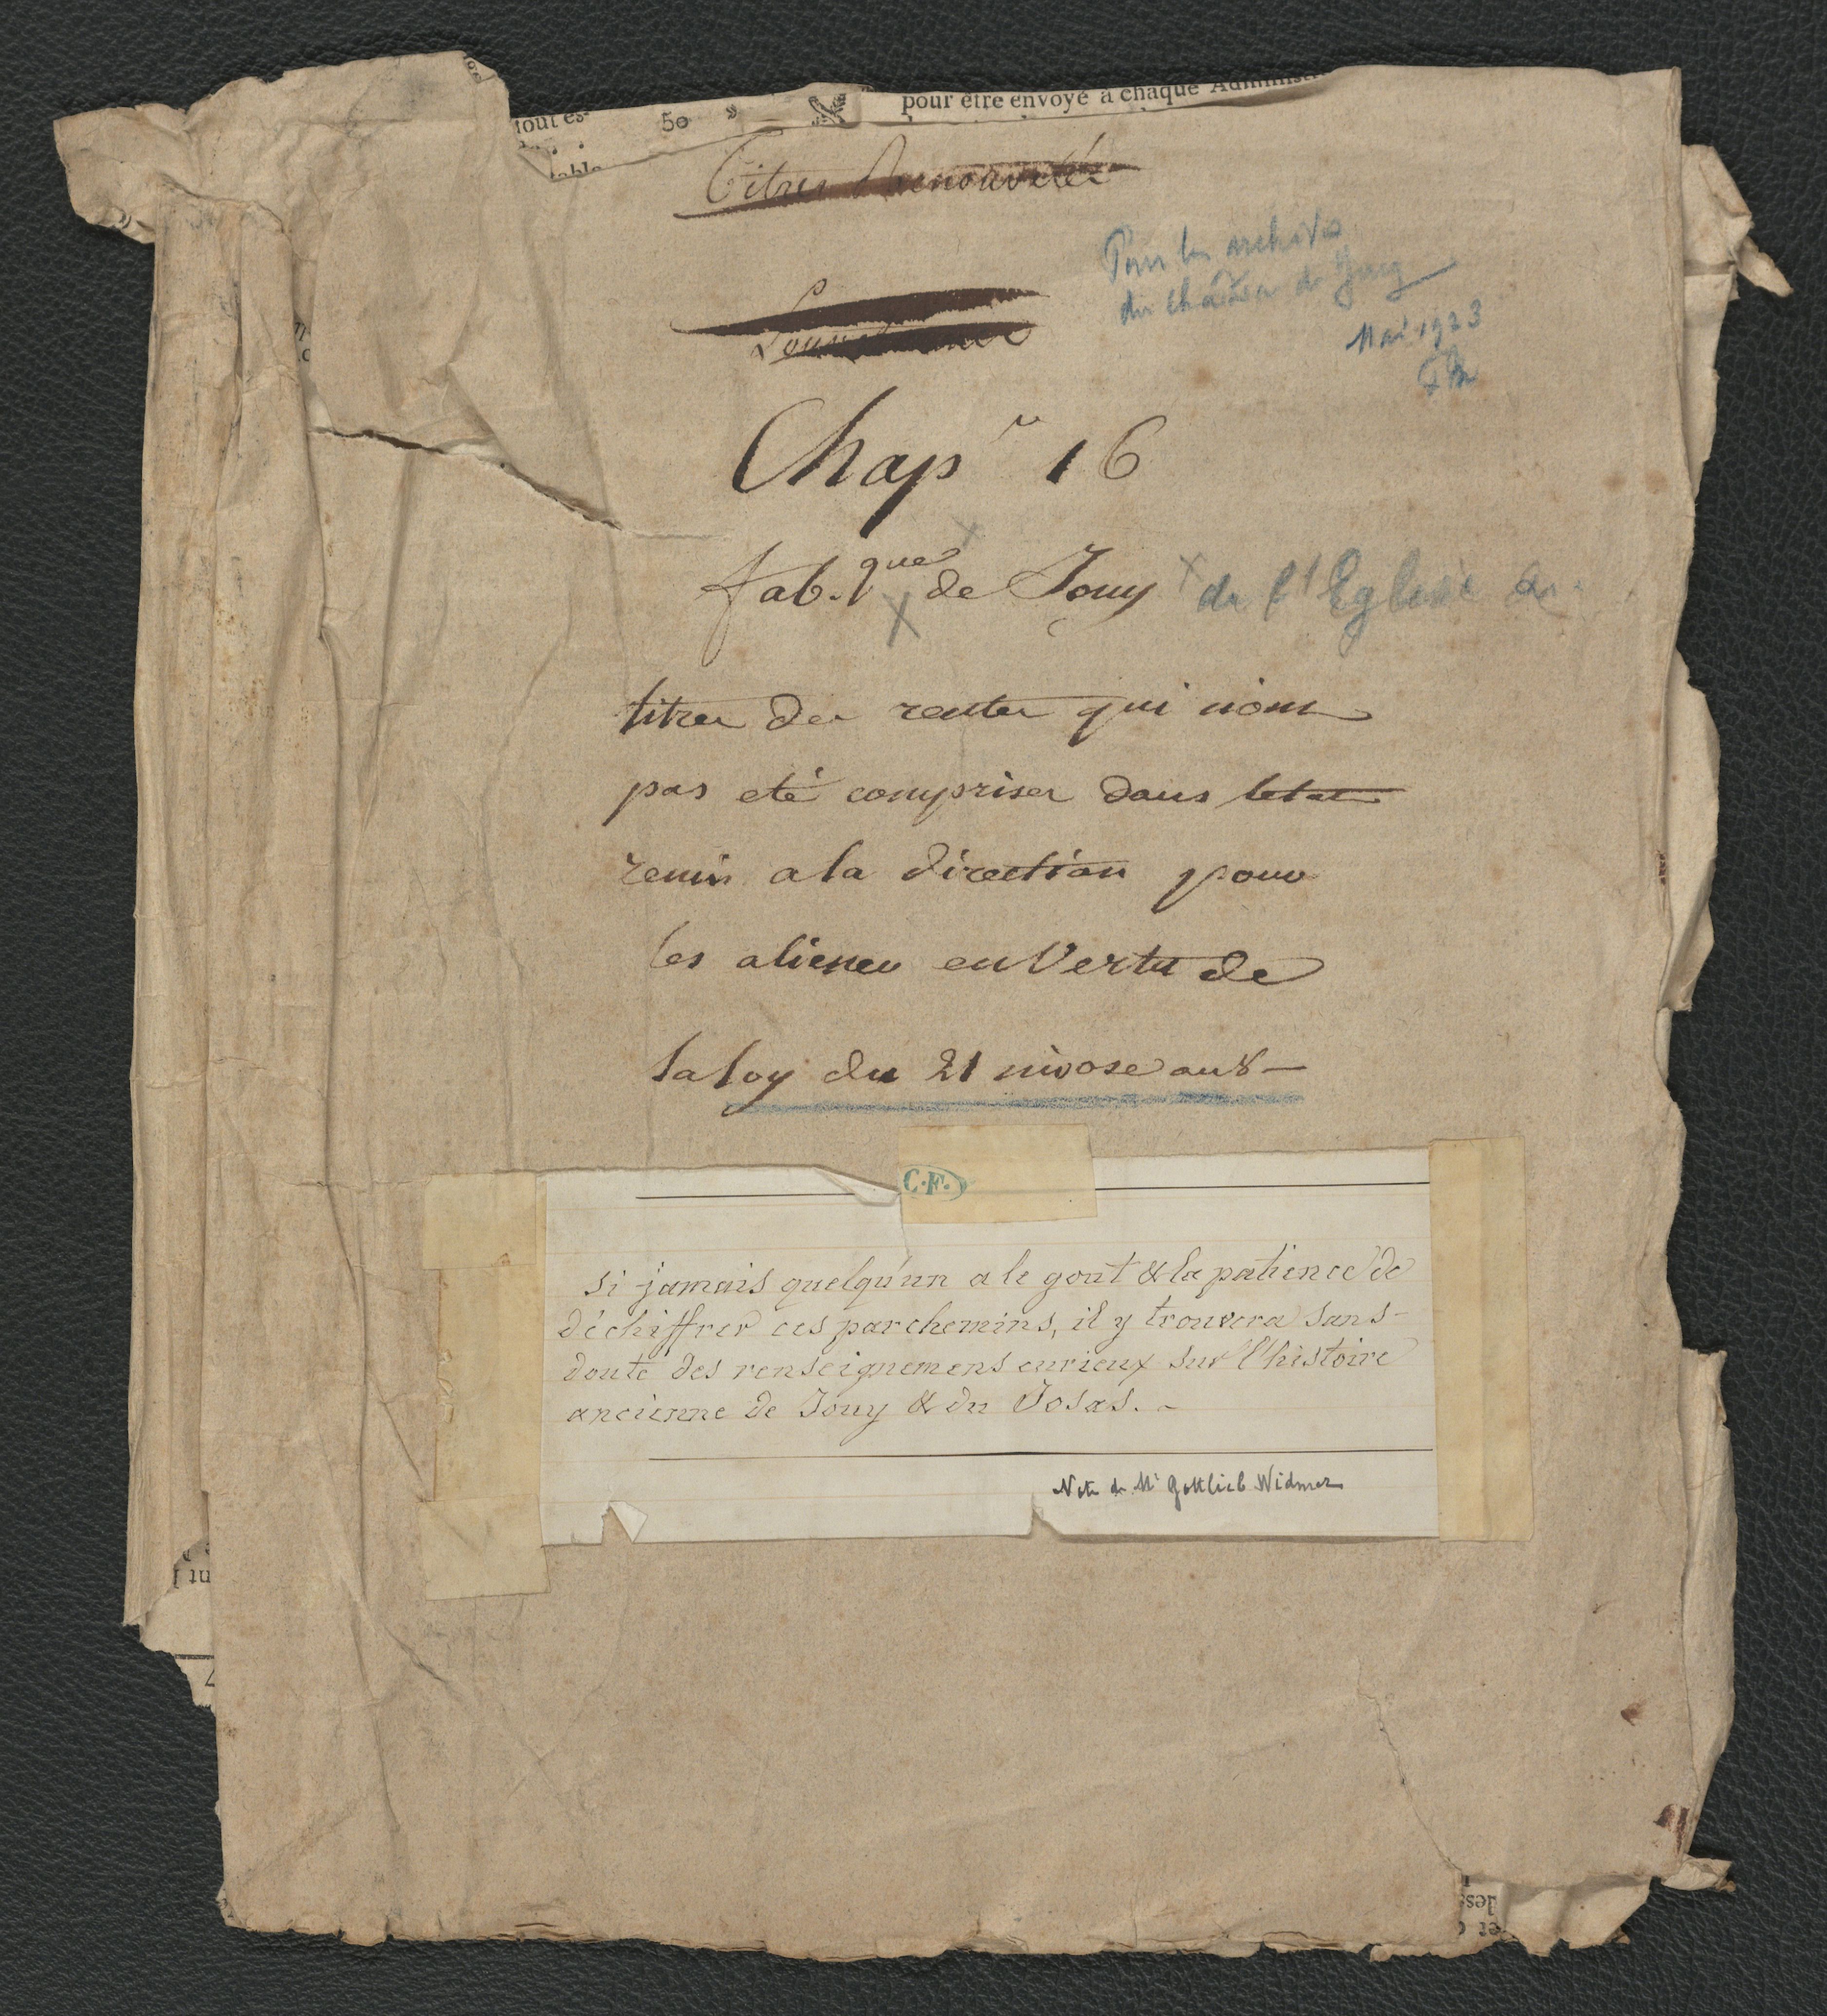 tout es-
50 »
pour être envoyé à chaque Administr
table
Titres Renouvellé
Pour les archives
du château de Jouy
Mai 1923
Chap.re 16
fab.que de Jouy de l'Eglise de
titres des rentes qui n'ont
pas eté comprises dans letat
remis a la direction pour
les aliener en Vertu de
la loy du 21 nivose an 8 —
C.F.
Si jamais quelqu'un a le gout & la patience de
déchiffrer ces parchemins, il y trouvera sans-
doute des renseignemens curieux sur l'histoire
ancienne de Jouy & du Josas. -
Note de Mr Gottlieb Widmer